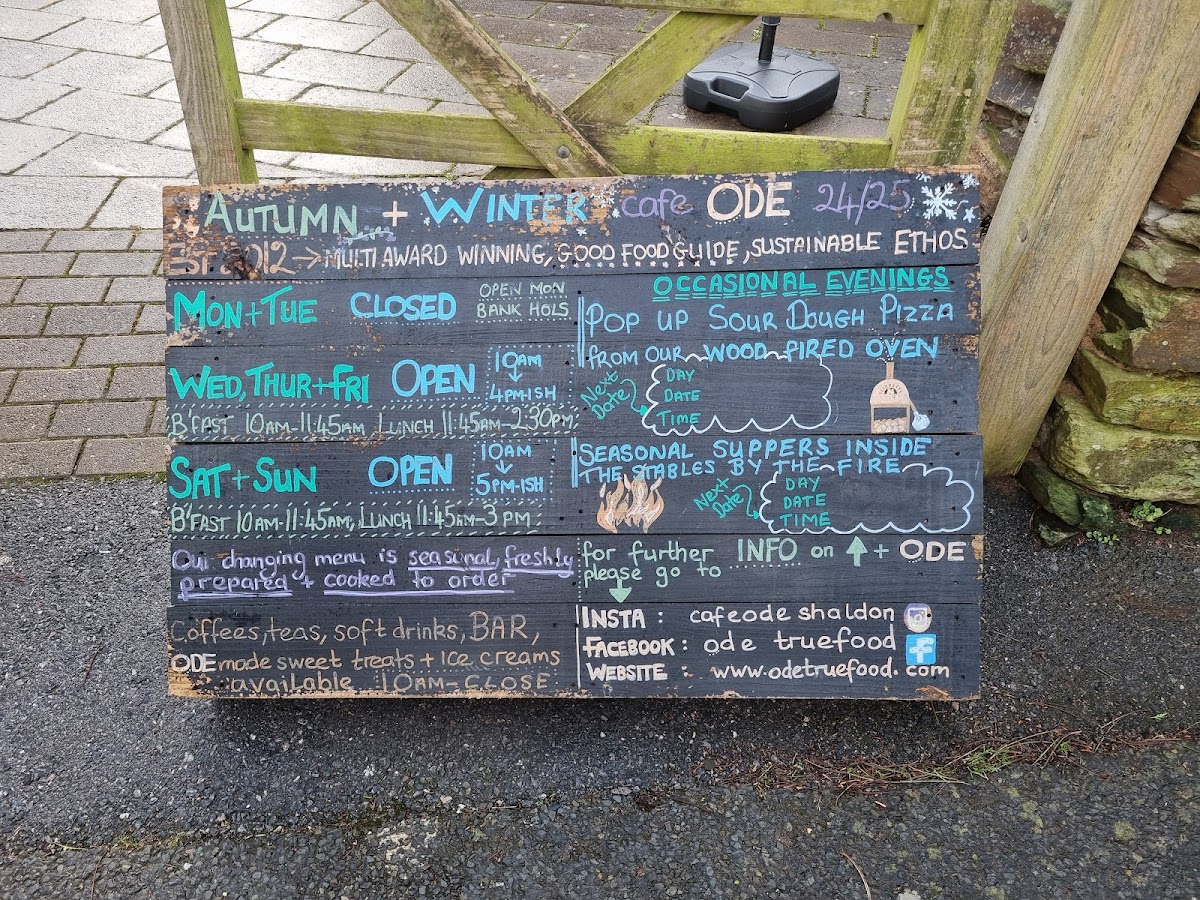 AUTUMN + WINTER cafe ODE 24/25
EST 2012 → MULTI AWARD WINNING, GOOD FOOD GUIDE, SUSTAINABLE ETHOS
MON+TUE CLOSED OPEN MON
BANK HOLS
WED, THUR+FRI OPEN 10AM
↓
4PM-ISH
B'FAST 10AM-11:45AM LUNCH 11:45AM-2.30PM
SAT + SUN OPEN 10AM
↓
5PM-ISH
B'FAST 10AM-11:45AM, LUNCH 11:45AM-3PM
Our changing menu is seasonal, freshly
prepared + cooked to order
Coffees, teas, soft drinks, BAR,
ODE made sweet treats + ICE creams
available 10AM-CLOSE
OCCASIONAL EVENINGS
POP UP SOUR DOUGH PIZZA
FROM OUR WOOD FIRED OVEN
Next
Date
DAY
DATE
TIME
SEASONAL SUPPERS INSIDE
THE STABLES BY THE FIRE
Next
Date
DAY
DATE
TIME
for further INFO on ↑ + ODE
please go to
↓
INSTA : cafeode shaldon
FACEBOOK : ode truefood f
WEBSITE : www.odetruefood.com